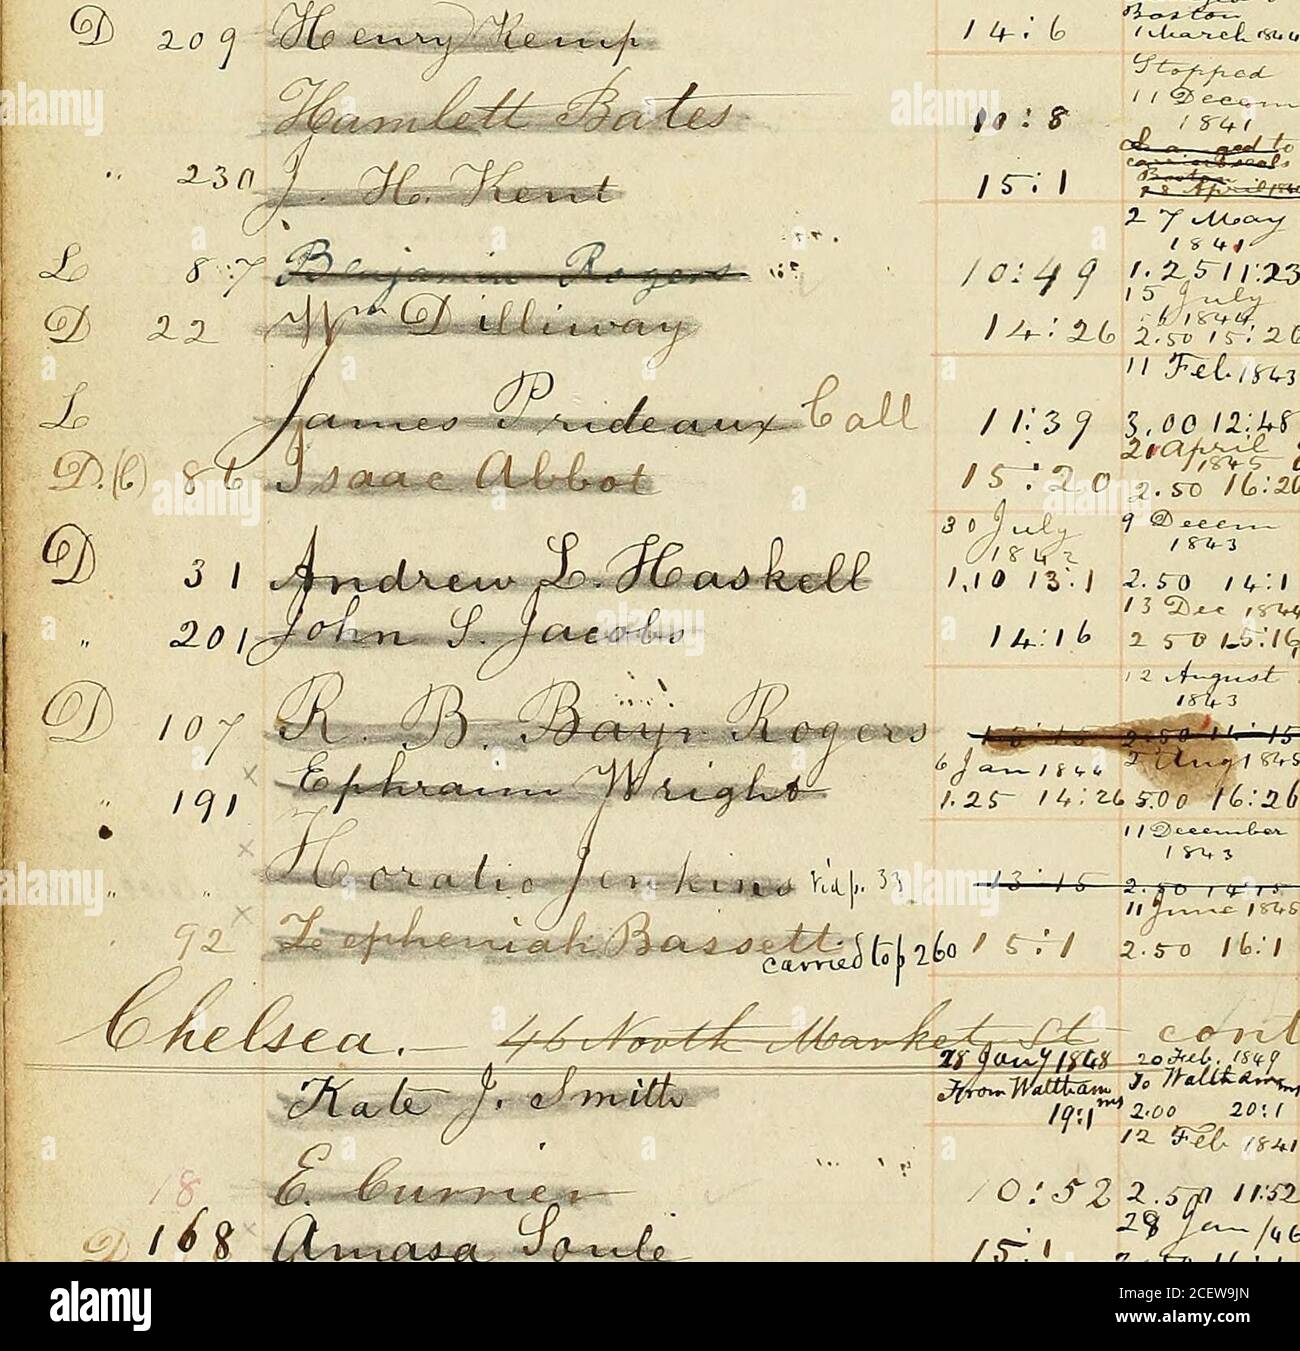 Boston
D 209 Henry Kemp 14:6 1 March 1844
Stopped
Hamlett Bates 10:8 11 Decem
1841
" 230 J. H. Kent 15:1
27 May
1841
L 87 Benjamin Rogers 10:49 1.25 11:23
15 July
1844
D 22 Wm Dilliway 14:26 2.50 15:26
11 Feb. 1843
L James Prideaux Call 11:39 3.00 12:48
21 April
1845
D.(C) 86 Isaac Abbot 15:20 2.50 16:20
30 July 9 Decem
1842 1843
D 31 Andrew L. Haskell 1.10 13:1 2.50 14:1
13 Dec 1844
" 201 John S. Jacobs 14:16 2 50 15:16
12 August
1843
D 107 R. B. Rogers 13:15 2.50 14:15
6 Jan 1844 2 Aug 1845
" 191 Ephraim Wright 1.25 14:26 5.00 16:26
11 December
1843
" " Horatio Jenkins vid p. 33 13:15 2.50 14:15
11 June 1845
92 Zepheniah Bassett 15:1 2.50 16:1
carried to p 260
Chelsea. 46 North Market St cont
28 Jany 1848 20 Feb. 1849
Kate J. Smith From Waltham To Waltham
19:1 ms 2.00 20:1
12 Feb 1841
18 E. Currier 10:52 2.50 11:52
28 Jan /46
D 168 Amasa Soule 15:1
alamy
Image ID: 2CEW9JN
www.alamy.com